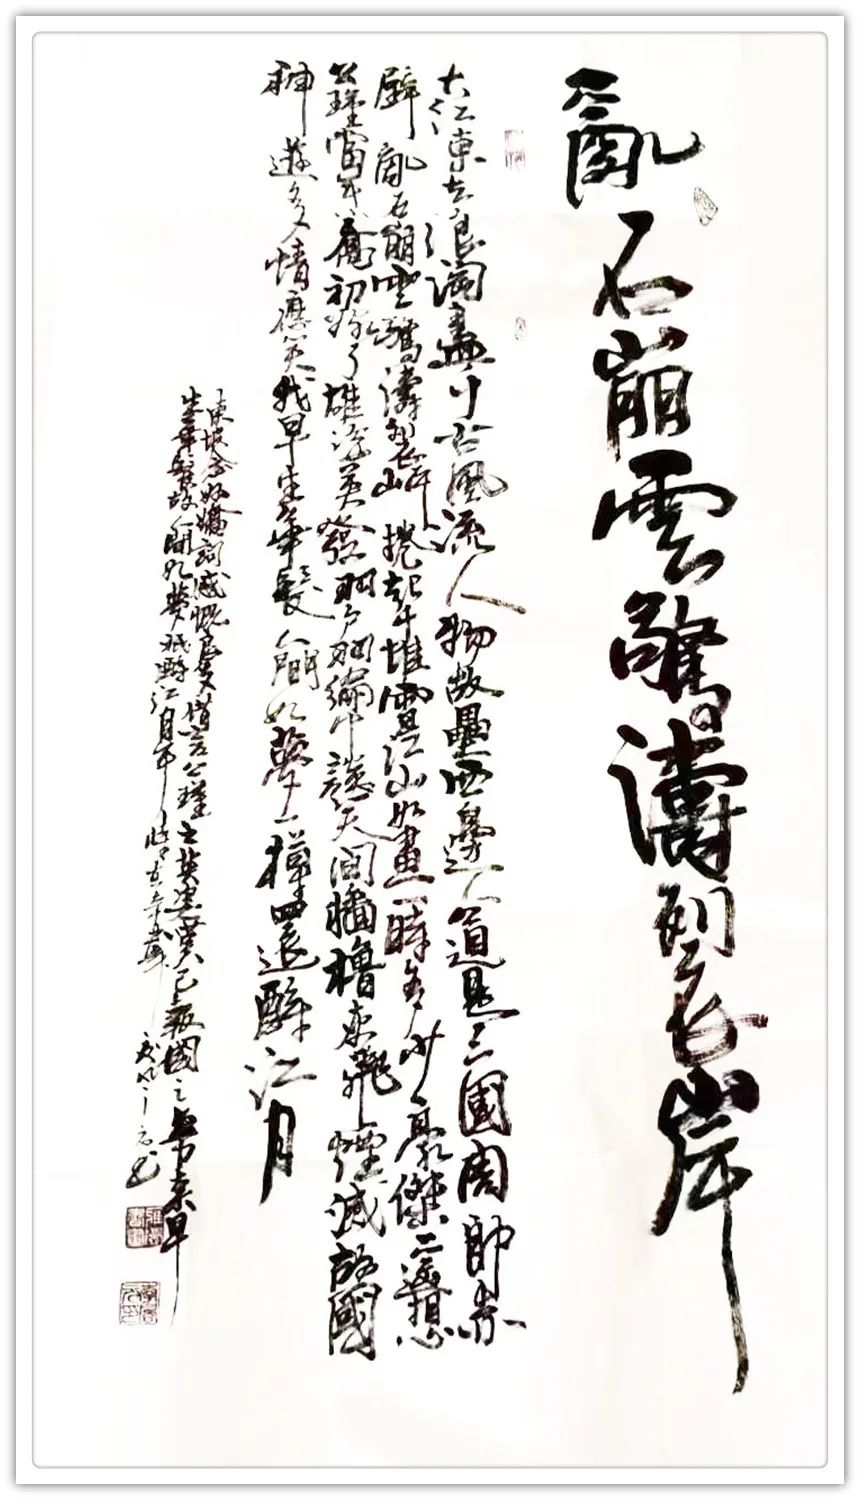 亂石崩雲驚濤裂岸
大江東去浪淘盡千古風流人物故壘西邊人道是三國周郎赤
壁亂石崩雲驚濤裂岸捲起千堆雪江山如畫一時多少豪傑遙想
公瑾當年小喬初嫁了雄姿英發羽扇綸巾談笑間檣櫓灰飛煙滅故國
神遊多情應笑我早生華髮人間如夢一樽還酹江月
東坡念奴嬌詞感慨良多借言公瑾之英姿嘆己報國之早
生華髮故人間如夢祇酹江月